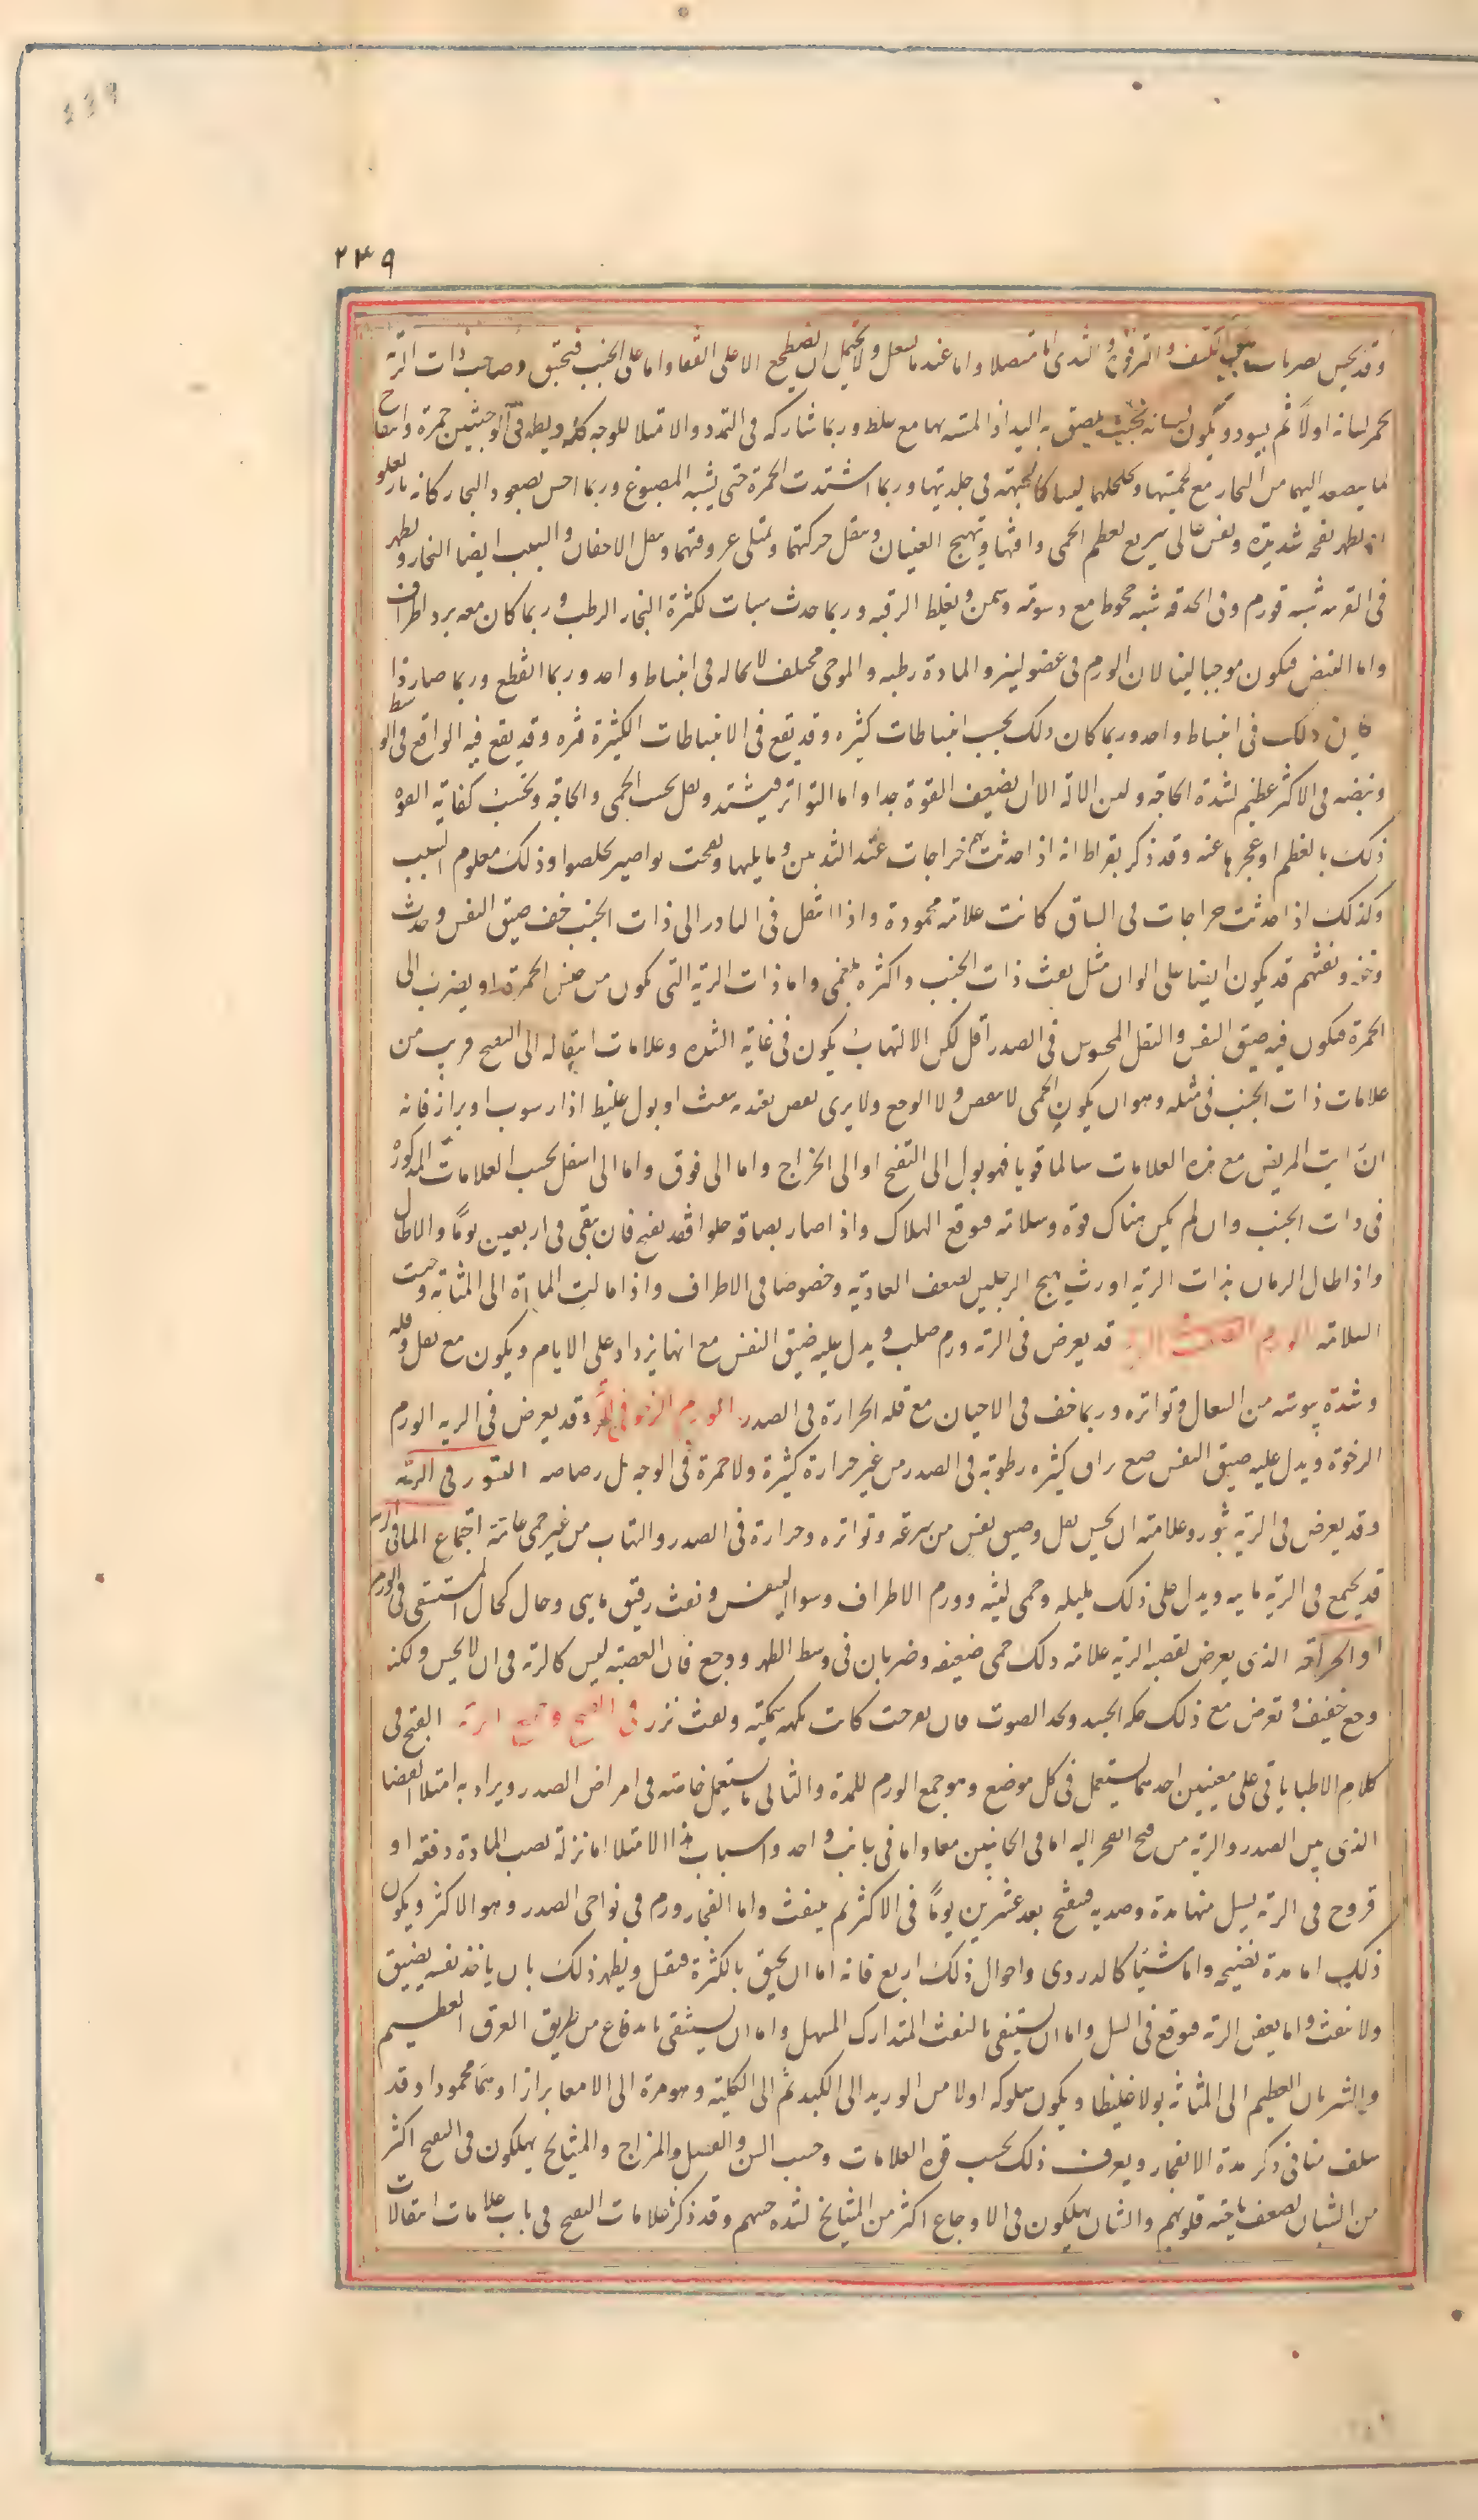 ٢٣٩
وقد يحس بضربات تحت الكتف والترقوة والثدى اما متصلا واما عند ما يسعل ولا يحتمل ان يضطجع الا على القفا واما على الجنب فيختنق وصاحب ذات الرية
يحمر لسانه اولا ثم يسود ويكون لسانه بحيث يلصق به اليد اذا لمسته بها مع غلظ وربما شاركه فى التمدد والامتلاء للوجه كله ويظهر فى الوجنتين حمرة وانتفاخ
لما يصعد اليهما من البخار مع لحميتها وتخلخلهما ليسا كالجبهة فى جلديتها وربما اشتدت الحمرة حتى يشبه المصبوغ وربما احس بصعود البخار كانه نار تعلو
ويظهر نفخه شديدة ونفس عالى سريع لعظم الحمى وافتها وتهيج العينان ويثقل حركتهما وتمتلى عروقهما وتثقل الاجفان والسبب ايضا البخار ويظهر
فى القرنيه شبه تورم وفى الحدقه شبه جحوظ مع دسومة وسمن ويغلظ الرقبه وربما حدث سبات لكثرة البخار الرطب وربما كان معه برد اطراف
واما النبض فيكون موجيا لينا لان الورم فى عضو لين والمادة رطبه والموجى مختلف لا محاله فى انبساط واحد وربما انقطع وربما صار ذا
قرعتين ذلك فى انبساط واحد وربما كان ذلك بحسب انبساطات كثيره وقد يقع فى الانبساطات الكثيرة فتره وقد يقع فيه الواقع فى الوسط
ونبضه فى الاكثر عظيم لشدة الحاجه ولين الالة الا ان يضعف القوة جدا واما التواتر فيشتد ويقل بحسب الحمى والحاجه وبحسب كفاية القوة
ذلك بالعظم او عجزها عنه وقد ذكر بقراط انه اذا حدث بهم خراجات عند الثديين وما يليها وانفتحت نواصير تخلصوا وذلك معلوم السبب
وكذلك اذا حدثت خراجات فى الساق كانت علامة محمودة واذا انتقل فى النادر الى ذات الجنب خف ضيق النفس وحدث
وخز ونفثهم قد يكون ايضا على الوان مثل نفث ذات الجنب واكثره بلغمى واما ذات الرية التى تكون من جنس الحمرة او يضرب الى
الحمرة فيكون فيه ضيق النفس والثقل المحسوس فى الصدر اقل لكن الالتهاب يكون فى غاية الشده وعلامات انتقاله الى التقيح قريب من
علامات ذات الجنب فى مثله وهو ان يكون الحمى لا تنقص ولا الوجع ولا يرى نقص يعتد به بنفث او بول غليظ اذا رسوب او براز فانه
ان رايت المريض مع هذه العلامات سالما قويا فهو يول الى التقيح او الى الخراج واما الى فوق واما الى اسفل بحسب العلامات المذكورة
فى ذات الجنب وان لم يكن هناك قوة وسلامه فتوقع الهلاك واذا صار بصاقه حلوا فقد تقيح فان تنقى فى اربعين يوما والا طال
واذا طال الزمان بذات الرية اورث تهيج الرجلين لضعف الغاذية وخصوصا فى الاطراف واذا مالت المادة الى المثانة رجيت
السلامه الورم الصلب فى الرية قد يعرض فى الرية ورم صلب ويدل عليه ضيق النفس مع انها يزداد على الايام ويكون مع ثقل وقلة
وشدة يبوسة من السعال وتواتره وربما خف فى الاحيان مع قله الحرارة فى الصدر الورم الرخو فى الرية وقد يعرض فى الريه الورم
الرخوة ويدل عليه ضيق النفس مع بزاق كثيره رطوبة فى الصدر من غير حرارة كثيرة ولا حمرة فى الوجه بل رصاصيه البثور فى الرئه
وقد يعرض فى الرية بثور وعلامته ان يحس بثقل وضيق نفس من سرعة وتواتره وحرارة فى الصدر والتهاب من غير حمى عامة اجتماع الماء فى الرية
قد يجتمع فى الرية مايه ويدل على ذلك مليله وحمى لينه وورم الاطراف وسوء التنفس ونفث رقيق مايى وحال كحال المستسقى فى الورم
او الجراحة الذى يعرض لقصبه الرية علامة ذلك حمى ضعيفه وضربان فى وسط الظهر ووجع فان القصبه ليس كالرئة فى ان لا يحس ولكنه
وجع خفيف ويعرض مع ذلك حكه الجسد وبحه الصوت فان تقرحت كانت نكهه سمكية ونفث نزر فى القيح وجمع الرئة القيح فى
كلام الاطباء ياتى على معنيين احدهما يستعمل فى كل موضع وهو جمع الورم للمدة والثانى ما يستعمل خاصة فى امراض الصدر ويراد به امتلاء الفضاء
الذى بين الصدر والرية من قيح انفجر اليه اما فى الجانبين معا واما فى جانب واحد واسباب هذا الامتلاء اما نزلة تصب المادة دفعه او
قروح فى الرئة يسيل منها مدة وصديد فيتقيح بعد عشرين يوما فى الاكثر ثم ينفث واما انفجار ورم فى نواحى الصدر وهو الاكثر ويكون
ذلك اما مدة نضيجه واما شيئا كالدردى واحوال ذلك اربع فانه اما ان يخنق بالكثرة فيقتل ويظهر ذلك بان ياخذ نفسه يضيق
ولا ينفث واما يعفن الرئة فيوقع فى السل واما ان يستنقى بالنفث المتدارك السهل واما ان يستنقى باندفاع من طريق العرق العظيم
والشريان العظيم الى المثانة بولا غليظا ويكون سلوكه اولا من الوريد الى الكبد ثم الى الكلية وهو مرة الى الامعا برازا وهما محمودان وقد
سلف منا فى ذكر مدة الانفجار ويعرف ذلك بحسب قوة العلامات وحسب السن والفصل والمزاج والمشايخ يهلكون فى التقيح اكثر
من الشبان لضعف ناحية قلوبهم والشبان يهلكون فى الاوجاع اكثر من المشايخ لشده حسهم وقد ذكر علامات التقيح فى باب علامات انتقالات